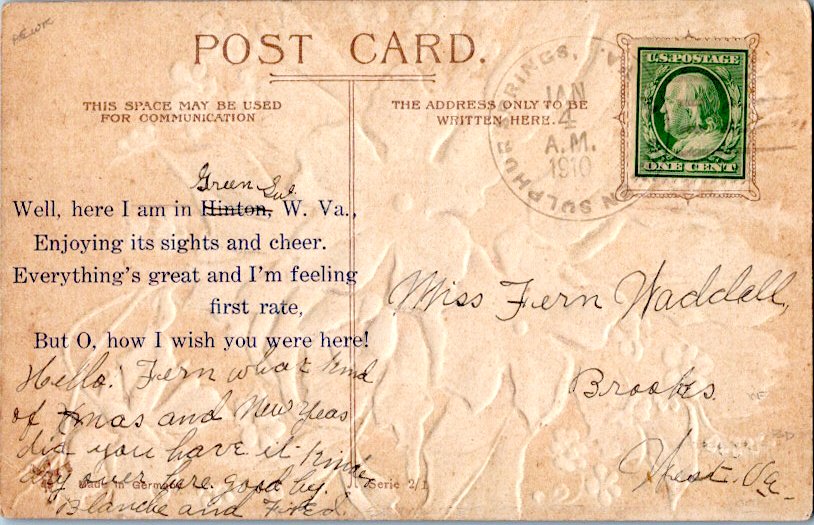 POST CARD.
THIS SPACE MAY BE USED
FOR COMMUNICATION
THE ADDRESS ONLY TO BE
WRITTEN HERE.
SULPHUR SPRINGS,
JAN
4
A.M.
1910
U.S. POSTAGE
ONE CENT
Green Sul.
Well, here I am in Hinton, W. Va.,
Enjoying its sights and cheer.
Everything's great and I'm feeling
first rate,
But O, how I wish you were here!
Hello. Fern what kind
of Xmas and New Yeas
did you have it kinda
dry over here good by.
Blanche and Fred
Made in Germany
Serie 2/1
Miss Fern Waddell,
Brooks
West. Va.